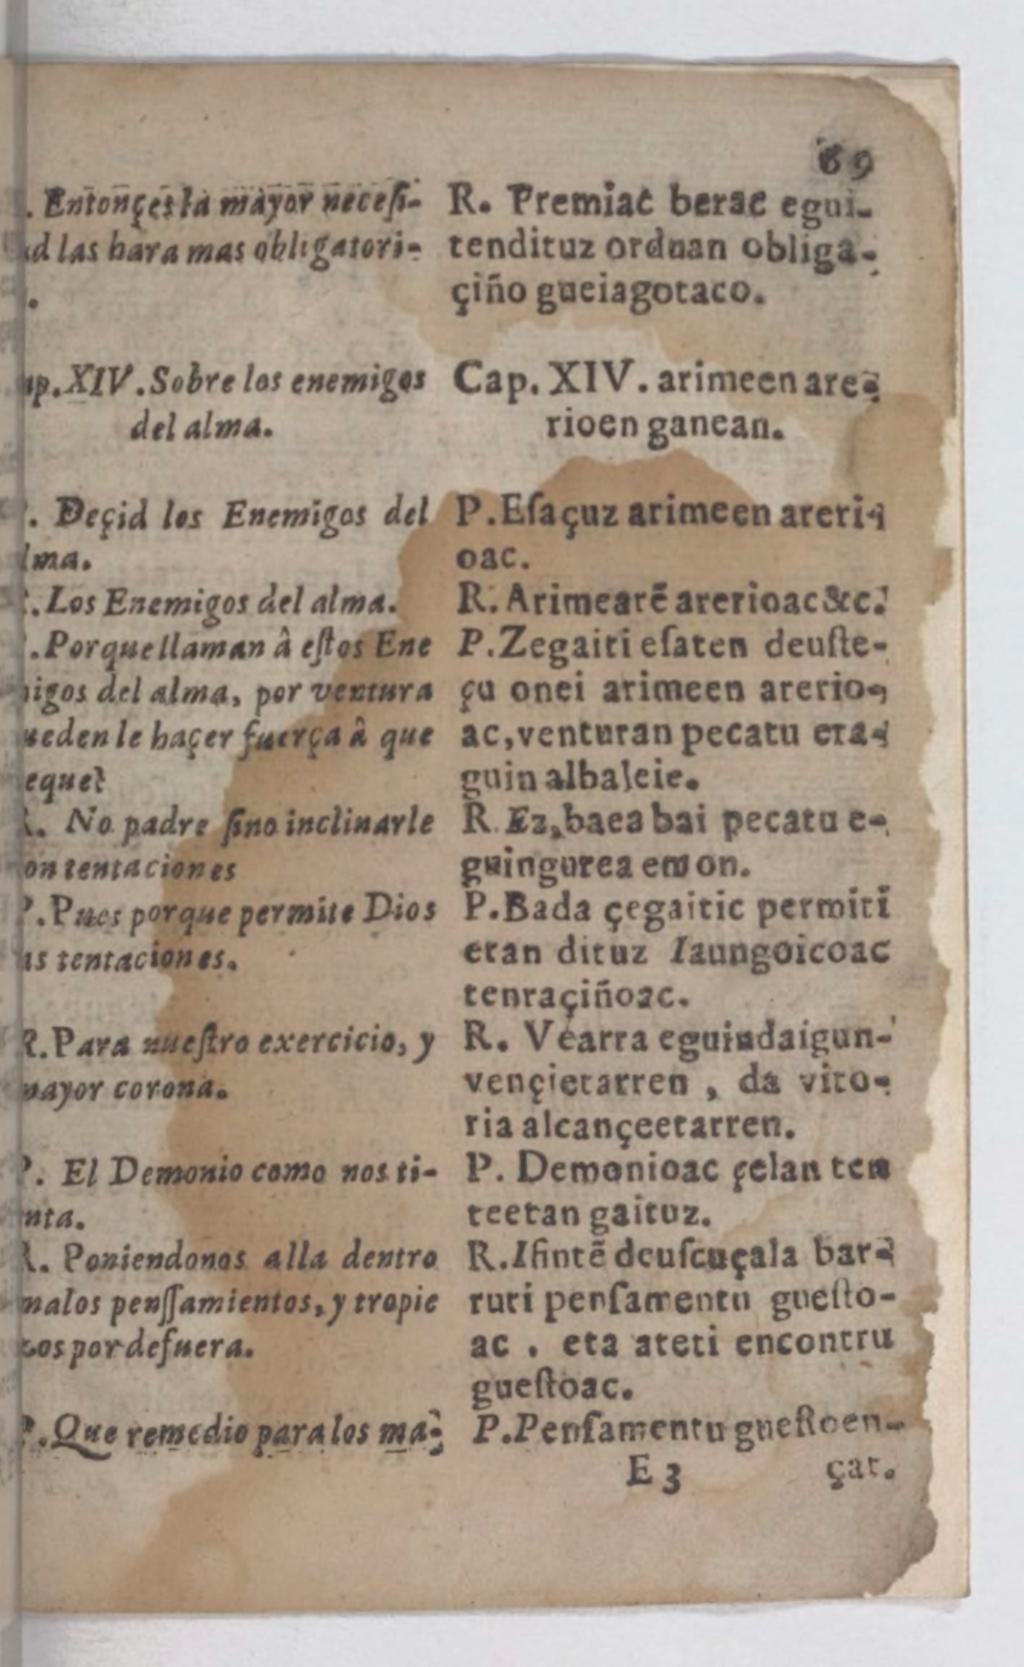 69
. Entonçes la mayor necesi-
d las hara mas obligatori-
.
ap.XIV.Sobre los enemigos
del alma.
. Deçid los Enemigos del
lma.
.Los Enemigos del alma.
.Porque llaman â eſtos Ene
igos del alma, por ventura
ueden le haçer fuerça â que
eque?
. No padre ſino inclinarle
on tentaciones
P.Pues porque permite Dios
as tentaciones.
R.Para nueſtro exercicio, y
mayor corona.
P. El Demonio como nos ti-
nta.
R. Poniendonos alla dentro
malos penſſamientos, y tropie
ços por defuera.
P.Que remedio para los ma-
R. Premiac berac egui-
tendituz orduan obliga-
çiño gueiagotaco.
Cap. XIV. arimeen are-
rioen ganean.
P.Eſaçuz arimeen areri-
oac.
R. Arimearē arerioac &c.
P.Zegaiti eſaten deuſte-
çu onei arimeen arerio-
ac, venturan pecatu era-
guin albaleie.
R. Ez, baea bai pecatu e-
guingurea emon.
P.Bada çegaitic permiti
etan dituz Iaungoicoac
tentaçiñoac.
R. Vearra eguindaigun-
vençietarren , da vito-
ria alcançeetarren.
P. Demonioac çelan ten
teetan gaituz.
R.Iſintē deuſcuçala bar-
ruti penſamentu gueſto-
ac . eta ateti encontru
gueſtoac.
P.Penſamentu gueſtoen-
E 3 çat.